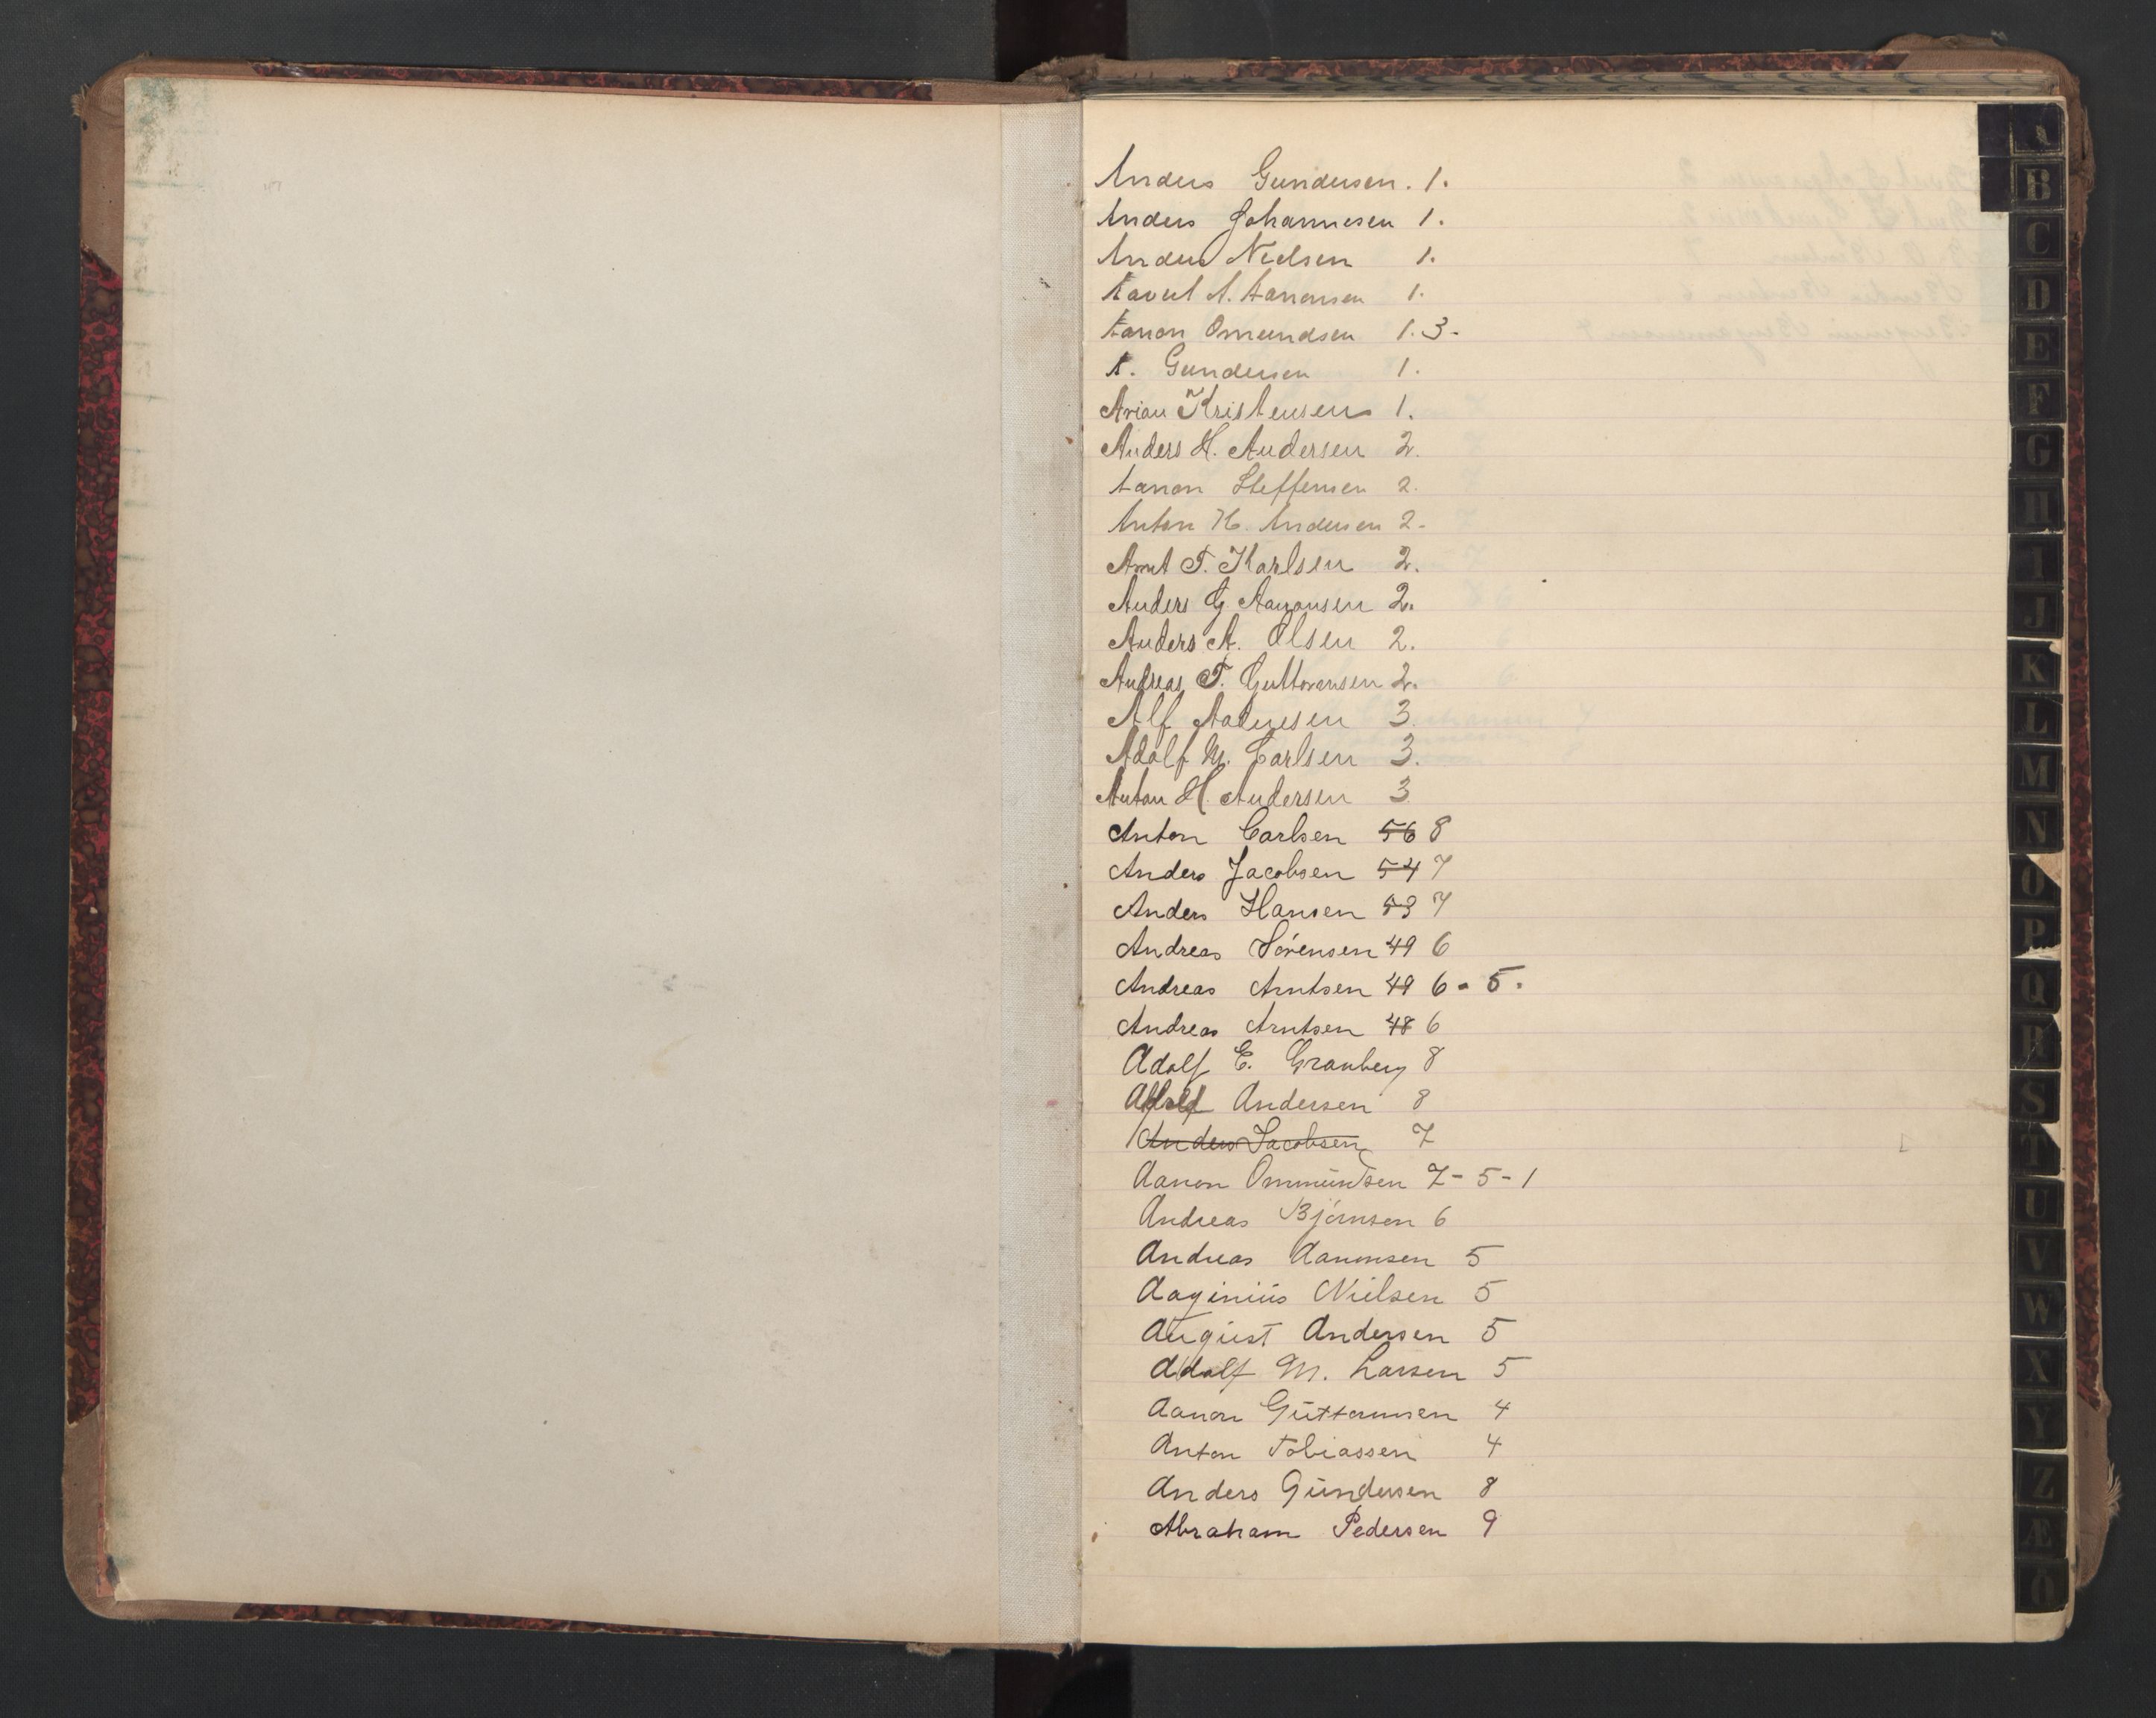 Anders Gundersen. 1.
Anders Johannesen 1.
Anders Nielsen 1.
A. Aanonsen 1.
Aanon Omundsen 1. 3-
A. Gundersen 1.
Arian Kristensen 1.
Anders H. Andersen 2.
Aanon Steffensen 2.
Anton H. Andersen 2-
Arnt T. Karlsen 2.
Anders G Aanonsen 2.
Anders A. Olsen 2.
Andreas T. Guttormsen 2.
Alf 3
Adolf M. Carlsen 3.
Anton H. Andersen 3
Anton Carlsen 56 8
Anders Jacobsen 54 7
Anders Hansen 53 7
Andreas Sörensen 49 6
Andreas Arntsen 49 6 - 5.
Andreas Arntsen 48 6
Adolf E. Granberg 8
Andersen 8
Anders Jacobsen 7
Aanon Ommundsen 7 - 5 - 1
Andreas Björnsen 6
Andreas Aanonsen 5
Aaginius Nielsen 5
August Andersen 5
Adolf M. Larsen 5
Aanon Guttormsen 4
Anton Tobiassen 4
Anders Gundersen 8
Abraham Pedersen 9
A
B
C
D
E
F
G
H
I
J
K
L
M
N
O
P
Q
R
S
T
U
V
W
X
Y
Z
Æ
Ö